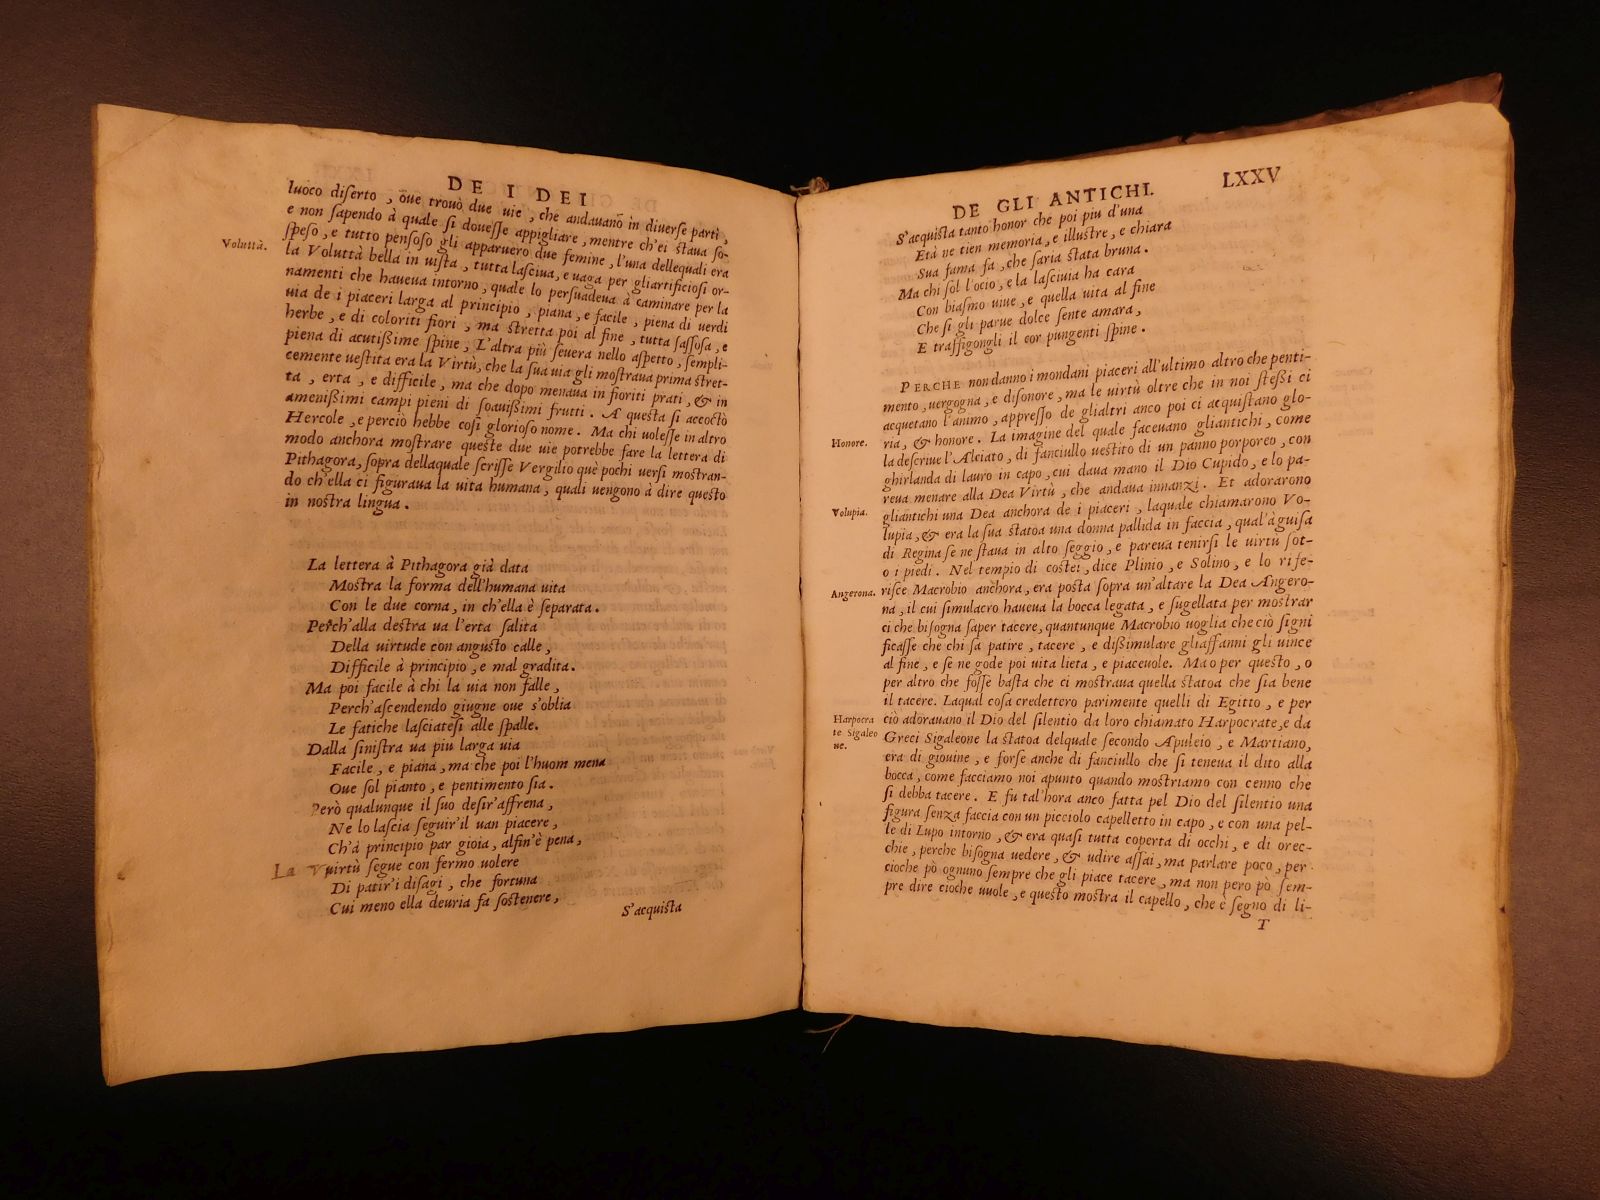 DE I DEI
luoco diſerto, oue trouò due uie, che andauano in diuerse parti,
e non ſapendo à quale ſi doueſſe appigliare, mentre ch'ei staua ſo-
ſpeſo, e tutto penſoso gli apparuero due femine, l'una dellequali era
Voluttà.
la Voluttà bella in uista, tutta laſciua, e uaga per gliartificiosi or-
namenti che haueua intorno, quale lo perſuadeua à caminare per la
uia de i piaceri larga al principio, piana, e facile, piena di uerdi
herbe, e di coloriti fiori, ma stretta poi al fine, tutta ſaſſosa, e
piena di acutiſsime ſpine, L'altra più ſeuera nello aſpetto, ſempli-
cemente uestita era la Virtù, che la ſua uia gli mostraua prima stret-
ta, erta, e difficile, ma che dopo menaua in fioriti prati, & in
ameniſsimi campi pieni di ſoauiſsimi frutti. A questa ſi accostò
Hercole, e perciò hebbe coſi glorioſo nome. Ma chi uoleſſe in altro
modo anchora mostrare queste due uie potrebbe fare la lettera di
Pithagora, ſopra dellaquale ſcriſſe Vergilio què pochi uerſi mostran-
do ch'ella ci figuraua la uita humana, quali uengono à dire questo
in nostra lingua.
La lettera à Pithagora già data
Mostra la forma dell'humana uita
Con le due corna, in ch'ella è ſeparata.
Perch'alla destra ua l'erta ſalita
Della uirtude con angusto calle,
Difficile à principio, e mal gradita.
Ma poi facile à chi la uia non falle,
Perch'aſcendendo giugne oue s'oblia
Le fatiche laſciateſi alle ſpalle.
Dalla ſinistra ua piu larga uia
Facile, e piana, ma che poi l'huom mena
Oue ſol pianto, e pentimento ſia.
Però qualunque il ſuo deſir'affrena,
Ne lo laſcia ſeguir'il uan piacere,
Ch'à principio par gioia, alfin'è pena,
La Vuirtù ſegue con fermo uolere
Di patir'i diſagi, che fortuna
Cui meno ella deuria fa ſostenere,
S'acquista
DE GLI ANTICHI. LXXV
S'acquista tanto honor che poi piu d'una
Età ne tien memoria, e illustre, e chiara
Sua fama fa, che ſaria stata bruna.
Ma chi ſol l'ocio, e la laſciuia ha cara
Con biaſmo uiue, e quella uita al fine
Che ſi gli parue dolce ſente amara,
E traffigongli il cor pungenti ſpine.
PERCHE non danno i mondani piaceri all'ultimo altro che penti-
mento, uergogna, e diſonore, ma le uirtù oltre che in noi steſsi ci
acquetano l'animo, appreſſo de glialtri anco poi ci acquistano glo-
Honore.
ria, & honore. La imagine del quale faceuano gliantichi, come
la deſcriue l'Alciato, di fanciullo uestito di un panno porporeo, con
ghirlanda di lauro in capo, cui daua mano il Dio Cupido, e lo pa-
reua menare alla Dea Virtù, che andaua innanzi. Et adorarono
Volupia.
gliantichi una Dea anchora de i piaceri, laquale chiamarono Vo-
lupia, & era la ſua statoa una donna pallida in faccia, qual'à guiſa
di Regina ſe ne staua in alto ſeggio, e pareua tenirſi le uirtù sot-
o i piedi. Nel tempio di costei, dice Plinio, e Solino, e lo rife-
Angerona.
riſce Macrobio anchora, era posta ſopra un'altare la Dea Angero-
na, il cui ſimulacro haueua la bocca legata, e ſugellata per mostrar
ci che biſogna ſaper tacere, quantunque Macrobio uoglia che ciò ſigni
ficaſſe che chi ſa patire, tacere, e diſsimulare gliaffanni gli uince
al fine, e ſe ne gode poi uita lieta, e piaceuole. Ma o per questo, o
per altro che foſſe basta che ci mostraua quella statoa che ſia bene
il tacere. Laqual coſa credettero parimente quelli di Egitto, e per
Harpocra
te Sigaleo
ne.
ciò adorauano il Dio del ſilentio da loro chiamato Harpocrate, e da
Greci Sigaleone la statoa delquale ſecondo Apuleio, e Martiano,
era di giouine, e forſe anche di fanciullo che ſi teneua il dito alla
bocca, come facciamo noi apunto quando mostriamo con cenno che
ſi debba tacere. E fu tal'hora anco fatta pel Dio del ſilentio una
figura ſenza faccia con un picciolo capelletto in capo, e con una pel-
le di Lupo intorno, & era quaſi tutta coperta di occhi, e di orec-
chie, perche biſogna uedere, & udire aſſai, ma parlare poco, per
cioche pò ognuno ſempre che gli piace tacere, ma non pero pò ſem-
pre dire cioche uuole, e questo mostra il capello, che è ſegno di li-
T